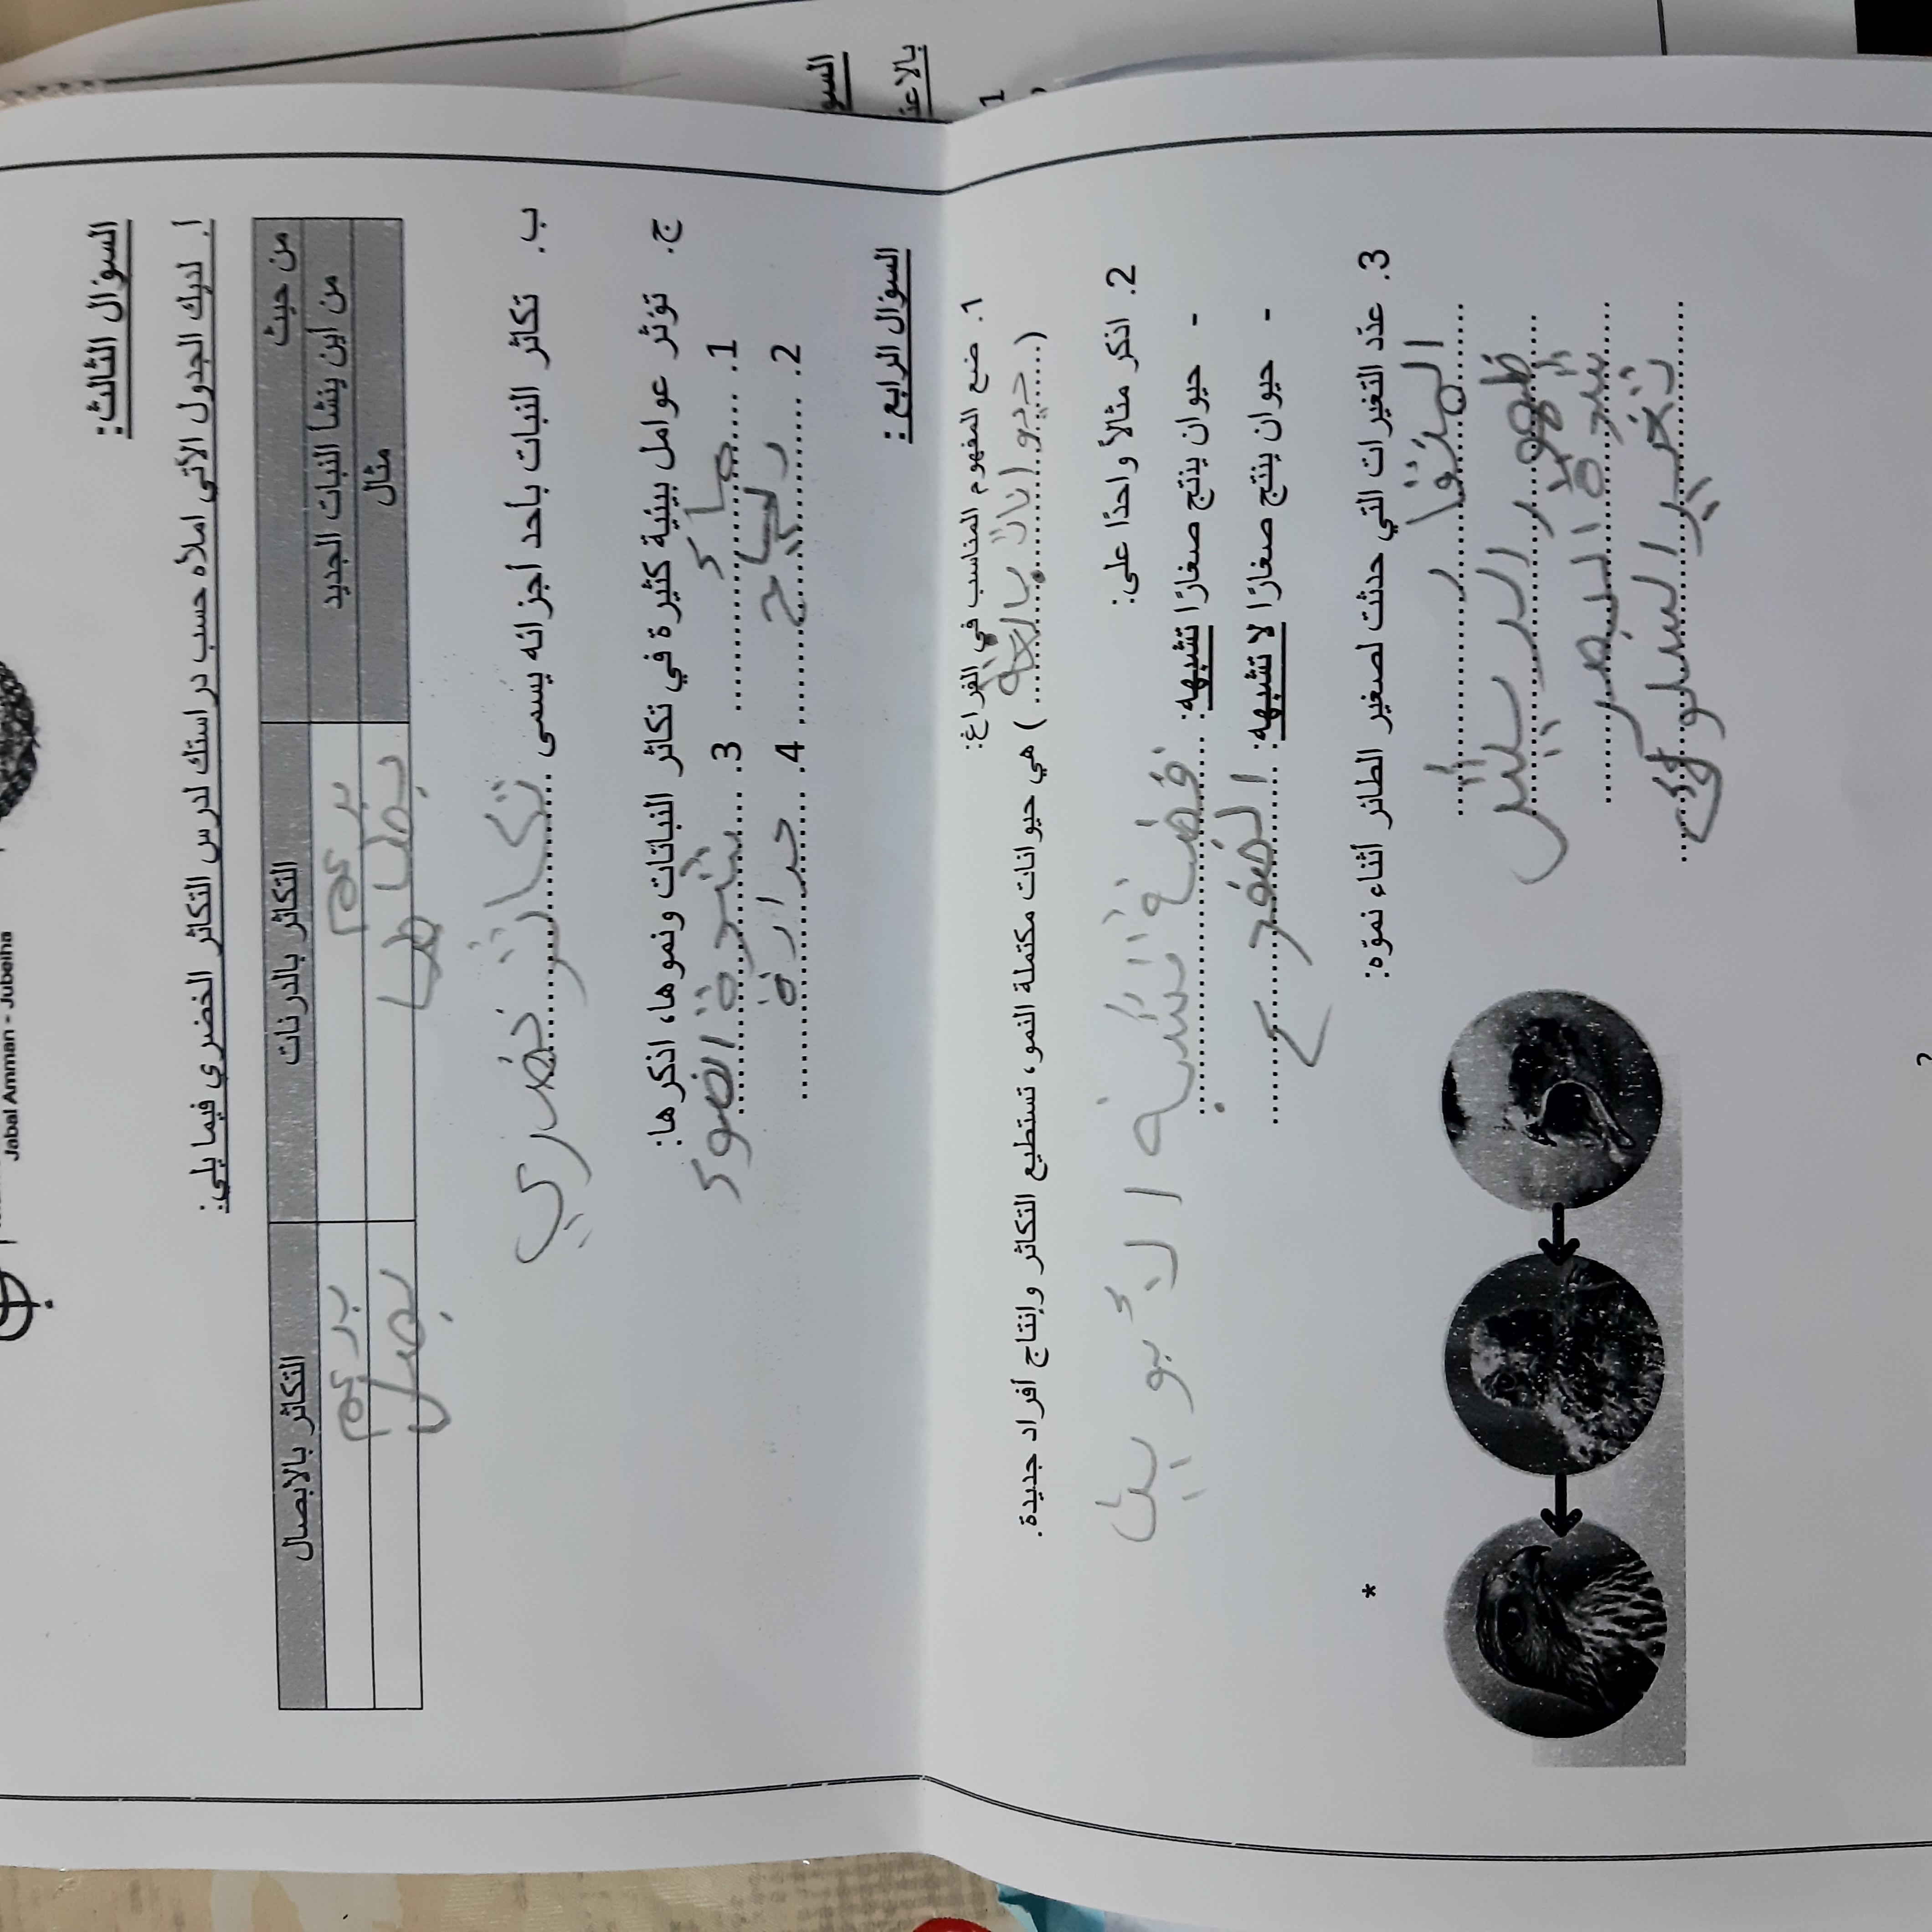 Jabal Amman - Jubeiha
السؤال الثالث:
أ. لديك الجدول الآتي املأه حسب دراستك لدرس التكاثر الخضري فيما يلي:
من حيث التكاثر بالدرنات التكاثر بالابصال
من أين ينشأ النبات الجديد برعم برعم
مثال بطاطا بصل
ب. تكاثر النبات بأحد أجزائه يسمى تكاثر خضري
ج. تؤثر عوامل بيئية كثيرة في تكاثر النباتات ونموها، اذكرها:
1. ماء 3. شدة الضوء
2. رياح 4. حرارة
السؤال الرابع:
1. ضع المفهوم المناسب في الفراغ:
(حيوانات بالغة) هي حيوانات مكتملة النمو، تستطيع التكاثر وإنتاج أفراد جديدة.
2. اذكر مثالاً واحدًا على:
- حيوان ينتج صغارًا تشبهه:
- حيوان ينتج صغارًا لا تشبهه: الضفدع
3. عدّد التغيرات التي حدثت لصغير الطائر أثناء نموّه:
*
ظهور الريش
البصر
تغير السلوك
السؤ
بالاعت
1
2